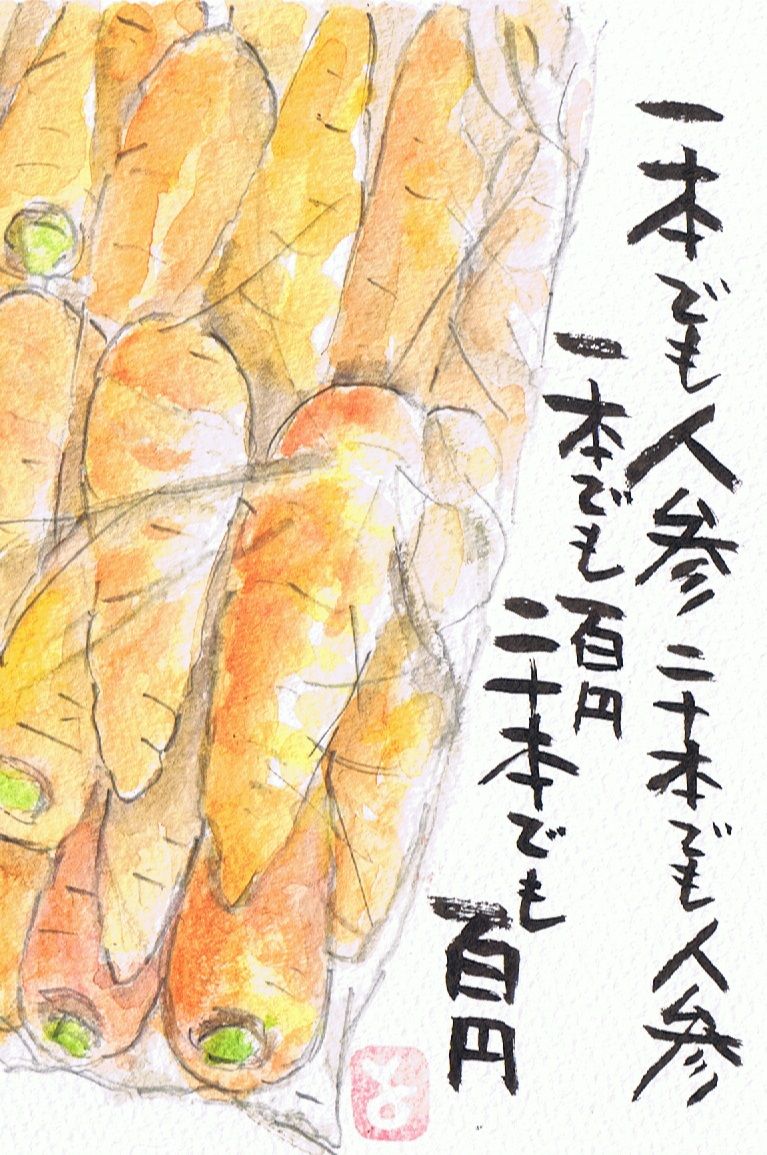 一本でも人参 二十本でも人参
一本でも百円
二十本でも百円